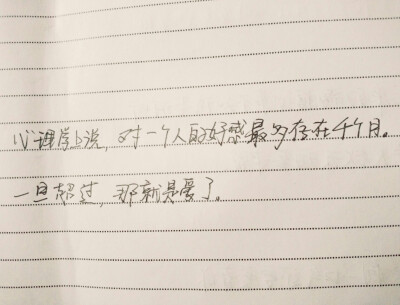 心理学上说,对一个人的好感最多存在4个月。
一旦超过,那就是爱了。